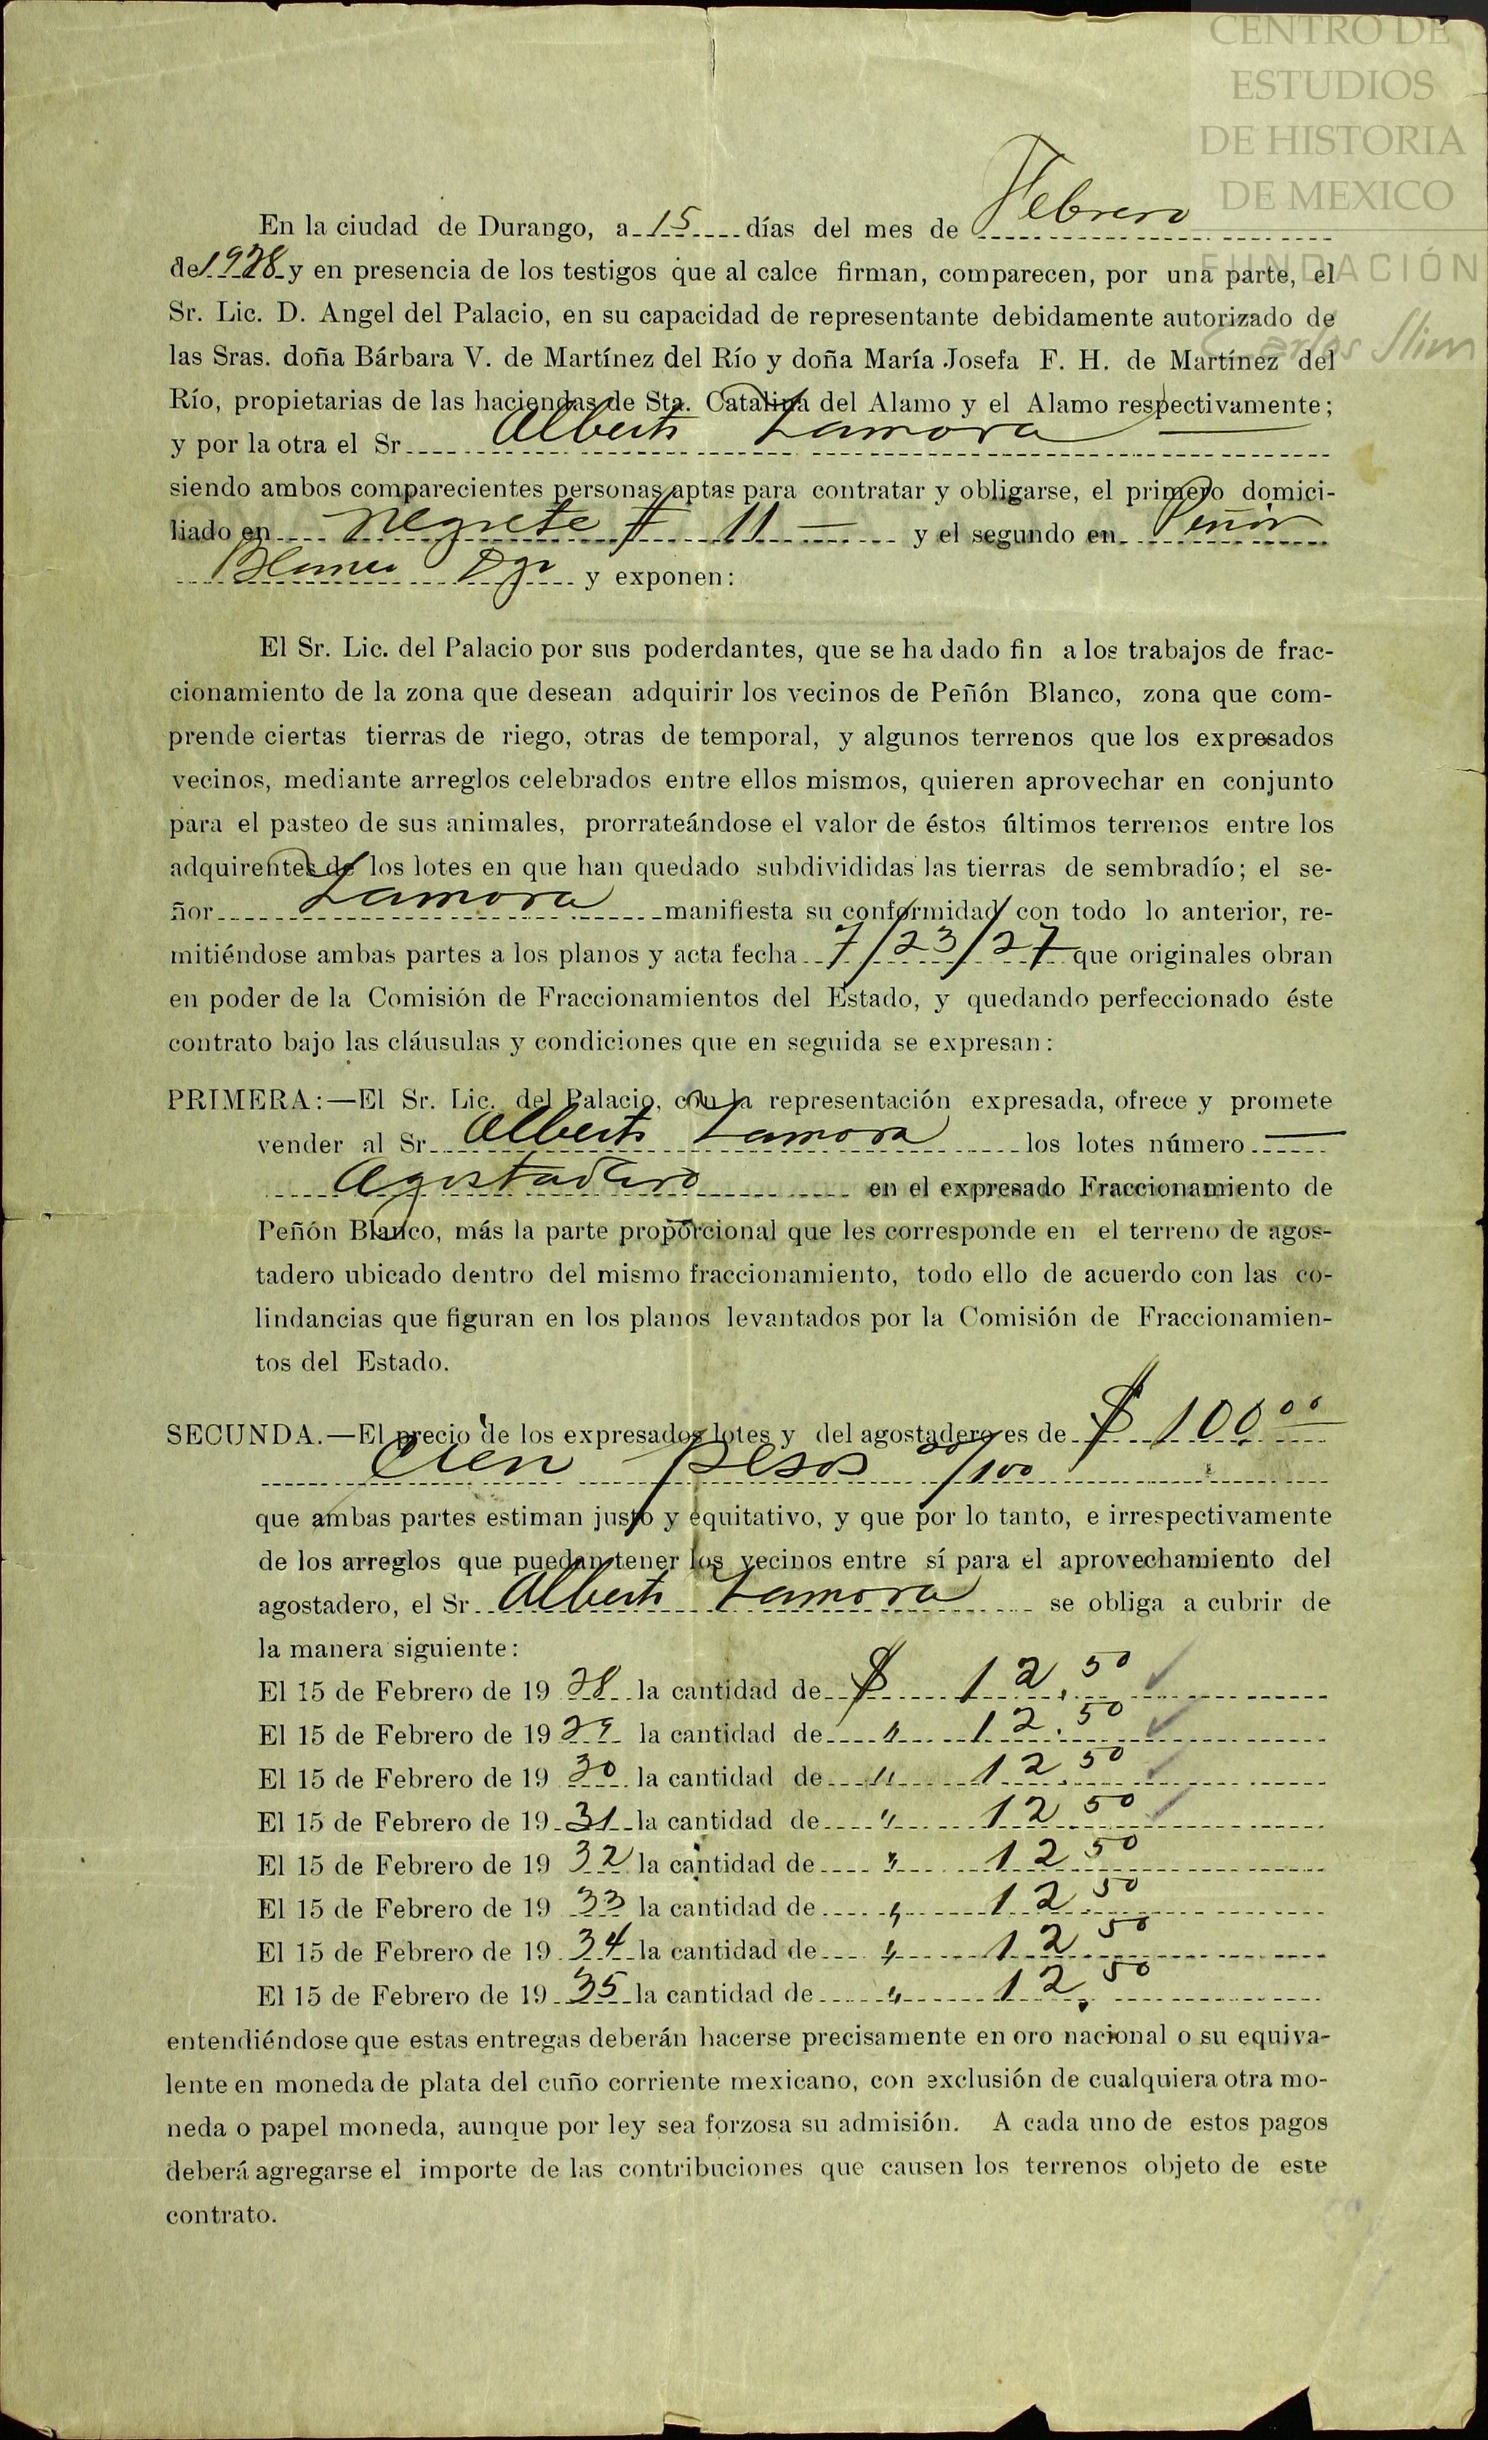 CENTRO DE
ESTUDIOS
DE HISTORIA
DE MEXICO
FUNDACIÓN
Carlos Slim
En la ciudad de Durango, a 15 días del mes de Febrero
de 1928 y en presencia de los testigos que al calce firman, comparecen, por una parte, el
Sr. Lic. D. Angel del Palacio, en su capacidad de representante debidamente autorizado de
las Sras. doña Bárbara V. de Martínez del Río y doña María Josefa F. H. de Martínez del
Río, propietarias de las haciendas de Sta. Catalina del Alamo y el Alamo respectivamente;
y por la otra el Sr Alberto Zamora
siendo ambos comparecientes personas aptas para contratar y obligarse, el primero domici-
liado en Negrete # 11 — y el segundo en Peñón
Blanco Dgo y exponen:
El Sr. Lic. del Palacio por sus poderdantes, que se ha dado fin a los trabajos de frac-
cionamiento de la zona que desean adquirir los vecinos de Peñón Blanco, zona que com-
prende ciertas tierras de riego, otras de temporal, y algunos terrenos que los expresados
vecinos, mediante arreglos celebrados entre ellos mismos, quieren aprovechar en conjunto
para el pasteo de sus animales, prorrateándose el valor de éstos últimos terrenos entre los
adquirentes de los lotes en que han quedado subdivididas las tierras de sembradío; el se-
ñor Zamora manifiesta su conformidad con todo lo anterior, re-
mitiéndose ambas partes a los planos y acta fecha 7/23/27 que originales obran
en poder de la Comisión de Fraccionamientos del Estado, y quedando perfeccionado éste
contrato bajo las cláusulas y condiciones que en seguida se expresan:
PRIMERA:—El Sr. Lic. del Palacio, con la representación expresada, ofrece y promete
vender al Sr Alberto Zamora los lotes número —
Agostadero en el expresado Fraccionamiento de
Peñón Blanco, más la parte proporcional que les corresponde en el terreno de agos-
tadero ubicado dentro del mismo fraccionamiento, todo ello de acuerdo con las co-
lindancias que figuran en los planos levantados por la Comisión de Fraccionamien-
tos del Estado.
SECUNDA.—El precio de los expresados lotes y del agostadero es de $ 100.00
Cien pesos 00/100
que ambas partes estiman justo y equitativo, y que por lo tanto, e irrespectivamente
de los arreglos que puedan tener los vecinos entre sí para el aprovechamiento del
agostadero, el Sr Alberto Zamora se obliga a cubrir de
la manera siguiente:
El 15 de Febrero de 19 28 la cantidad de $ 12.50 ✓
El 15 de Febrero de 19 29 la cantidad de " 12.50 ✓
El 15 de Febrero de 19 30 la cantidad de " 12.50 ✓
El 15 de Febrero de 19 31 la cantidad de " 12 50 ✓
El 15 de Febrero de 19 32 la cantidad de " 12 50
El 15 de Febrero de 19 33 la cantidad de " 12.50
El 15 de Febrero de 19 34 la cantidad de " 12 50
El 15 de Febrero de 19 35 la cantidad de " 12.50
entendiéndose que estas entregas deberán hacerse precisamente en oro nacional o su equiva-
lente en moneda de plata del cuño corriente mexicano, con exclusión de cualquiera otra mo-
neda o papel moneda, aunque por ley sea forzosa su admisión. A cada uno de estos pagos
deberá agregarse el importe de las contribuciones que causen los terrenos objeto de este
contrato.